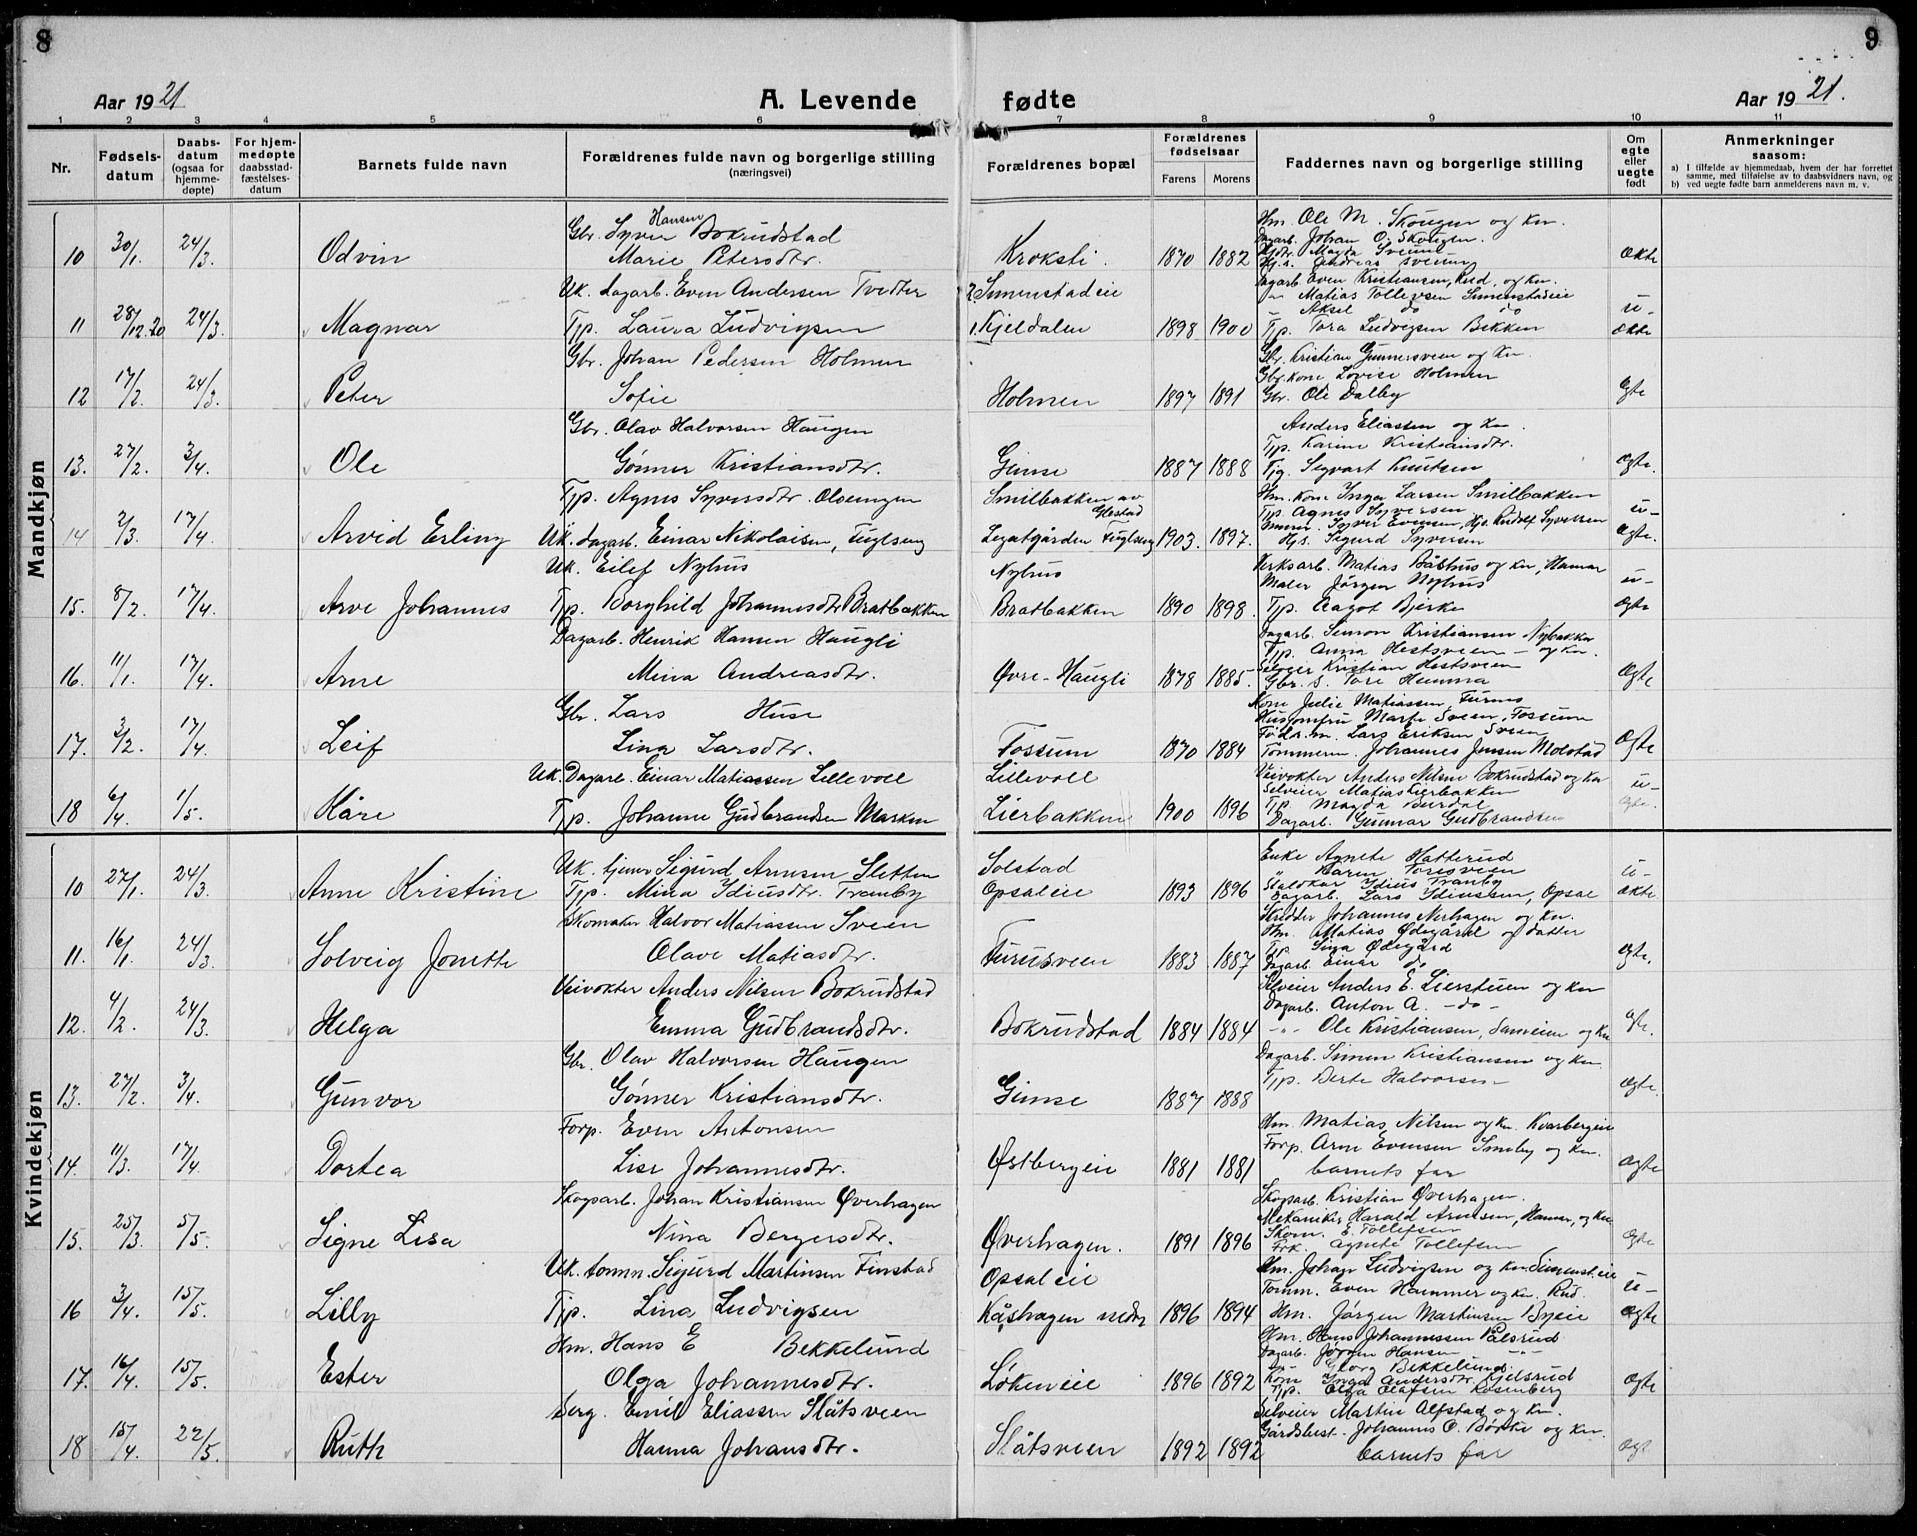 8
9
Aar 1921
A. Levende
fødte
Aar 1921.
1 2 3 4 5 6 7 8 9 10 11
Nr.
Fødsels-datum
Daabs-datum (ogsaa for hjemme-døpte)
For hjem-medøpte daabsstad-fæstelses-datum
Barnets fulde navn
Forældrenes fulde navn og borgerlige stilling (næringsvei)
Forældrenes bopæl
Forældrenes fødselsaar
Farens Morens
Faddernes navn og borgerlige stilling
Om egte eller uegte født
Anmerkninger saasom:
a) I tilfælde av hjemmedaab, hvem der har forrettet samme, med tilføielse av to daabsvidners navn, og
b) ved uegte fødte barn anmelderens navn m. v.
Mandkjøn
Gbr. Syver Hansen Bokrudstad
Hm. Ole M. Skougen og kn.
Dagarb. Johan O. Skougen.
10 30/1. 24/3. Odvin Marie Petersdtr. Kroksti. 1870 1882 Ækte
Uk. dagarb. Even Andersen Tvedter 2. Simenstadeie
Dagarb Even Kristiansen, Rud, og kn.
Matias Tollevsen Simenstadeie
Aksel do do u-
11 28/12.20 24/3. Magnar Tjp. Laura Ludvigsen 1. Kjeldalen 1898 1900 Tjp. Tora Ludvigsen Bekken Ækte
Gbr. Johan Pedersen Holmen
Gbr. Kristian Gunnersveen og kn.
Gbr. kone Lovise Holmen
12 17/2. 24/3. Peter Sofie Holmen 1897 1891 Gbr. Ole Dalby Egte
Gbr. Olav Halvorsen Haugen
Anders Eliassen og kn.
Tjp. Karine Kristiansdtr.
13. 27/2. 3/4. Ole Gønner Kristiansdtr. Gimse 1887 1888 Tjg. Segvart Knutsen Ægte.
Tjp. Agnes Syversdtr. Smilbakken av
Hm. kone Inga Larsen Smilbakken
Tjp. Agnes Syversen u-
14 2/3. 17/4. Arvid Erling Uk. dagarb. Einar Nikolaisen, Fuglseng Legatgården Fuglseng 1903. 1897. Hjs. Sigurd Syversen Ægte.
Uk. Eilef Nyhus Nyhus
Verksarb. Matias Båshus og kn, Hamar
Maler Jørgen Nyhus u-
15. 8/2. 17/4. Arve Johannes Tjp. Borghild Johannesdtr Bratbakken Bratbakken 1890 1898. Tjp. Aagot Bjerke Ægte
Dagarb. Henrik Hansen Haugli
Dagarb. Simon Kristiansen Nybakke
Tjp. Anna Hestsveen og kn.
Selveier Kristian Hestsveen
16. 11/1. 17/4. Arne Mina Andreasdtr. Øvre-Haugli 1878 1885. Gbr. s. Tore Humma Ægte
Gbr. Lars Huse
Kone Julie Matiassen, Furnes
Husjomfru Marte Sveen, Fossum
Lars Eriksen Sveen
17. 3/2. 17/4. Leif Lina Larsdtr. Fossum 1870 1884 Tømmerm. Johannes Jensen Molstad Ægte
Uk. Dagarb. Einar Matiassen Lillevoll Lillevoll
Veivokter Anders Nilsen Bokrudstad og kn
Selveier Matias Lierbakken u-
Tjp. Magda Burdal
18 6/4. 1/5. Kåre Tjp. Johanne Gudbrandsen Marken Lierbakken 1900 1896 Dagarb. Gunnar Gudbrandsen Ægte.
Kvindekjøn
Uk. tjener Sigurd Arnesen Sletten Solstad
Enke Agnete Hatterud
" Karen Toresveen u-
Staldkar Idius Tranby
10 27/1. 24/3. Anne Kristine Tjp. Mina Idiusdtr. Tranby Opsaleie 1893 1896 Dagarb. Lars Idiussen, Opsal Ækte.
Skomaker Halvor Matiassen Sveen
Skredder Johannes Nerhagen og kn.
Hm. Matias Ødegård og datter
Tjp. Lina Ødegård
11. 16/1. 24/3. Solveig Jonette Olave Matiasdtr. Furusveen 1883 1887 Dagarb. Einar do Egte.
Veivokter Anders Nilsen Bokrudstad
Selveier Anders E. Lierstuen og kn
Dagarb. Anton A. -do-
12. 4/2. 24/3. Helga Emma Gudbrandsdtr. Bokrudstad 1884 1884 -"- Ole Kristiansen, Samveien og kn Egte.
Gbr. Olav Halvorsen Haugen
Dagarb. Simen Kristiansen og kn
Tjp. Berte Halvorsen
13. 27/2. 3/4. Gunvor Gønner Kristiansdtr. Gimse 1887 1888 Ægte.
Forp. Even Antonsen
Hm. Matias Nilsen og kn. Kvarbergeie
Forp. Arne Evensen Smeby og kn.
14. 11/3. 17/4. Dortea Lise Johannesdtr. Østbergeie 1881 1881 barnets far Ægte
Skogsarb. Johan Kristiansen Øverhagen
Skogsarb. Kristian Øverhagen.
Mekaniker Harald Arnesen, Hamar, og kn
Skom. E. Tollefsen
15. 25/3. 5/5. Signe Lisa Nina Bergersdtr. Øverhagen. 1891 1896 Frk. Agnete Tollefsen Ægte
Uk. tomm. Sigurd Martinsen Finstad Opsaleie
Hm. Johan Ludvigsen og kn Simenst.eie
Tomm. Even Hammer og kn. Rud. u-
16 3/4. 15/5. Lilly Tjp. Lina Ludvigsen Kåshagen nedre 1896 1894 Hm. Jørgen Martinsen Byeie Ægte
Hm. Hans E Bekkelund
Hm. Hans Johannessen Pålsrud
Dagarb. Jørgen Hansen -"-
-"- Georg Bekkelund
Kone Inga Andersdtr. Kjelsrud
17. 16/4. 15/5. Ester Olga Johannesdtr. Løkeneie 1896 1892 Tjp. Olga Olafsen Rosenberg Ægte
Serg. Emil Eliassen Slåtsveen
Selveier Martin Alfstad og kn.
Gårdsbest. Johannes O. Børke og kn.
18 15/4. 22/5. Ruth Hanna Johansdtr. Slåtsveen 1892 1892 barnets far Ægt